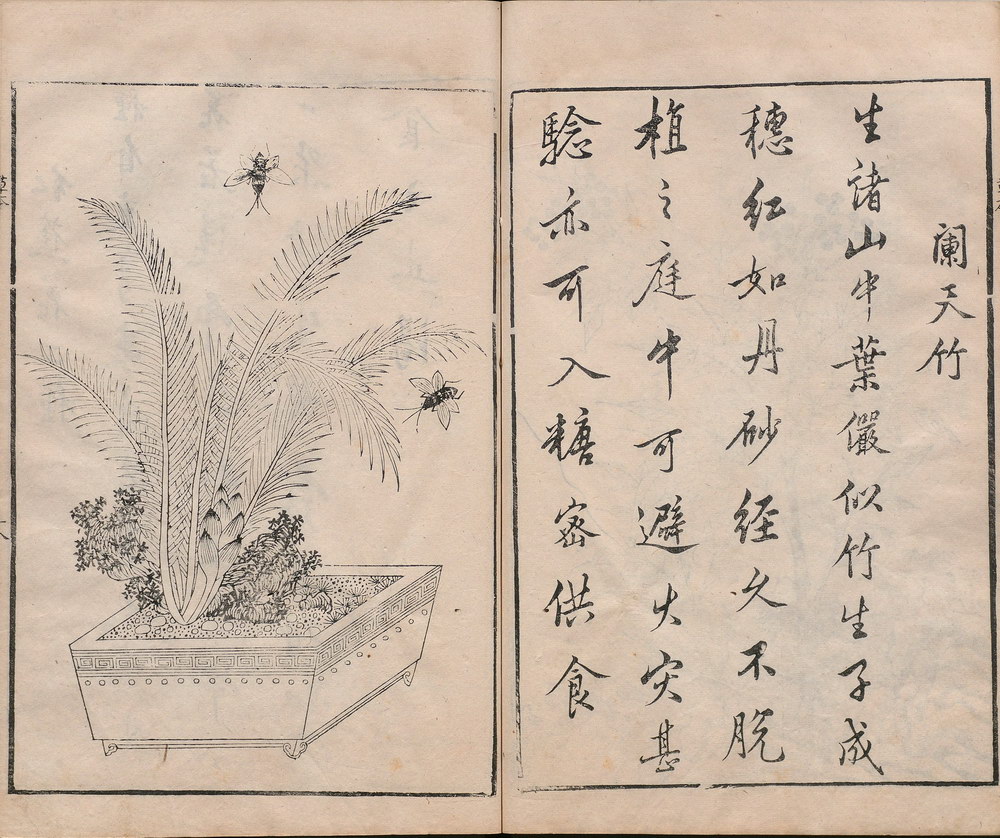 闌天竹
生諸山中葉儼似竹生子成
穗紅如丹砂經久不脫
植之庭中可避火灾甚
騐亦可入糖蜜供食